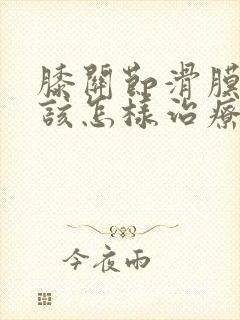 膝關節滑膜
該怎樣治療
今夜雨